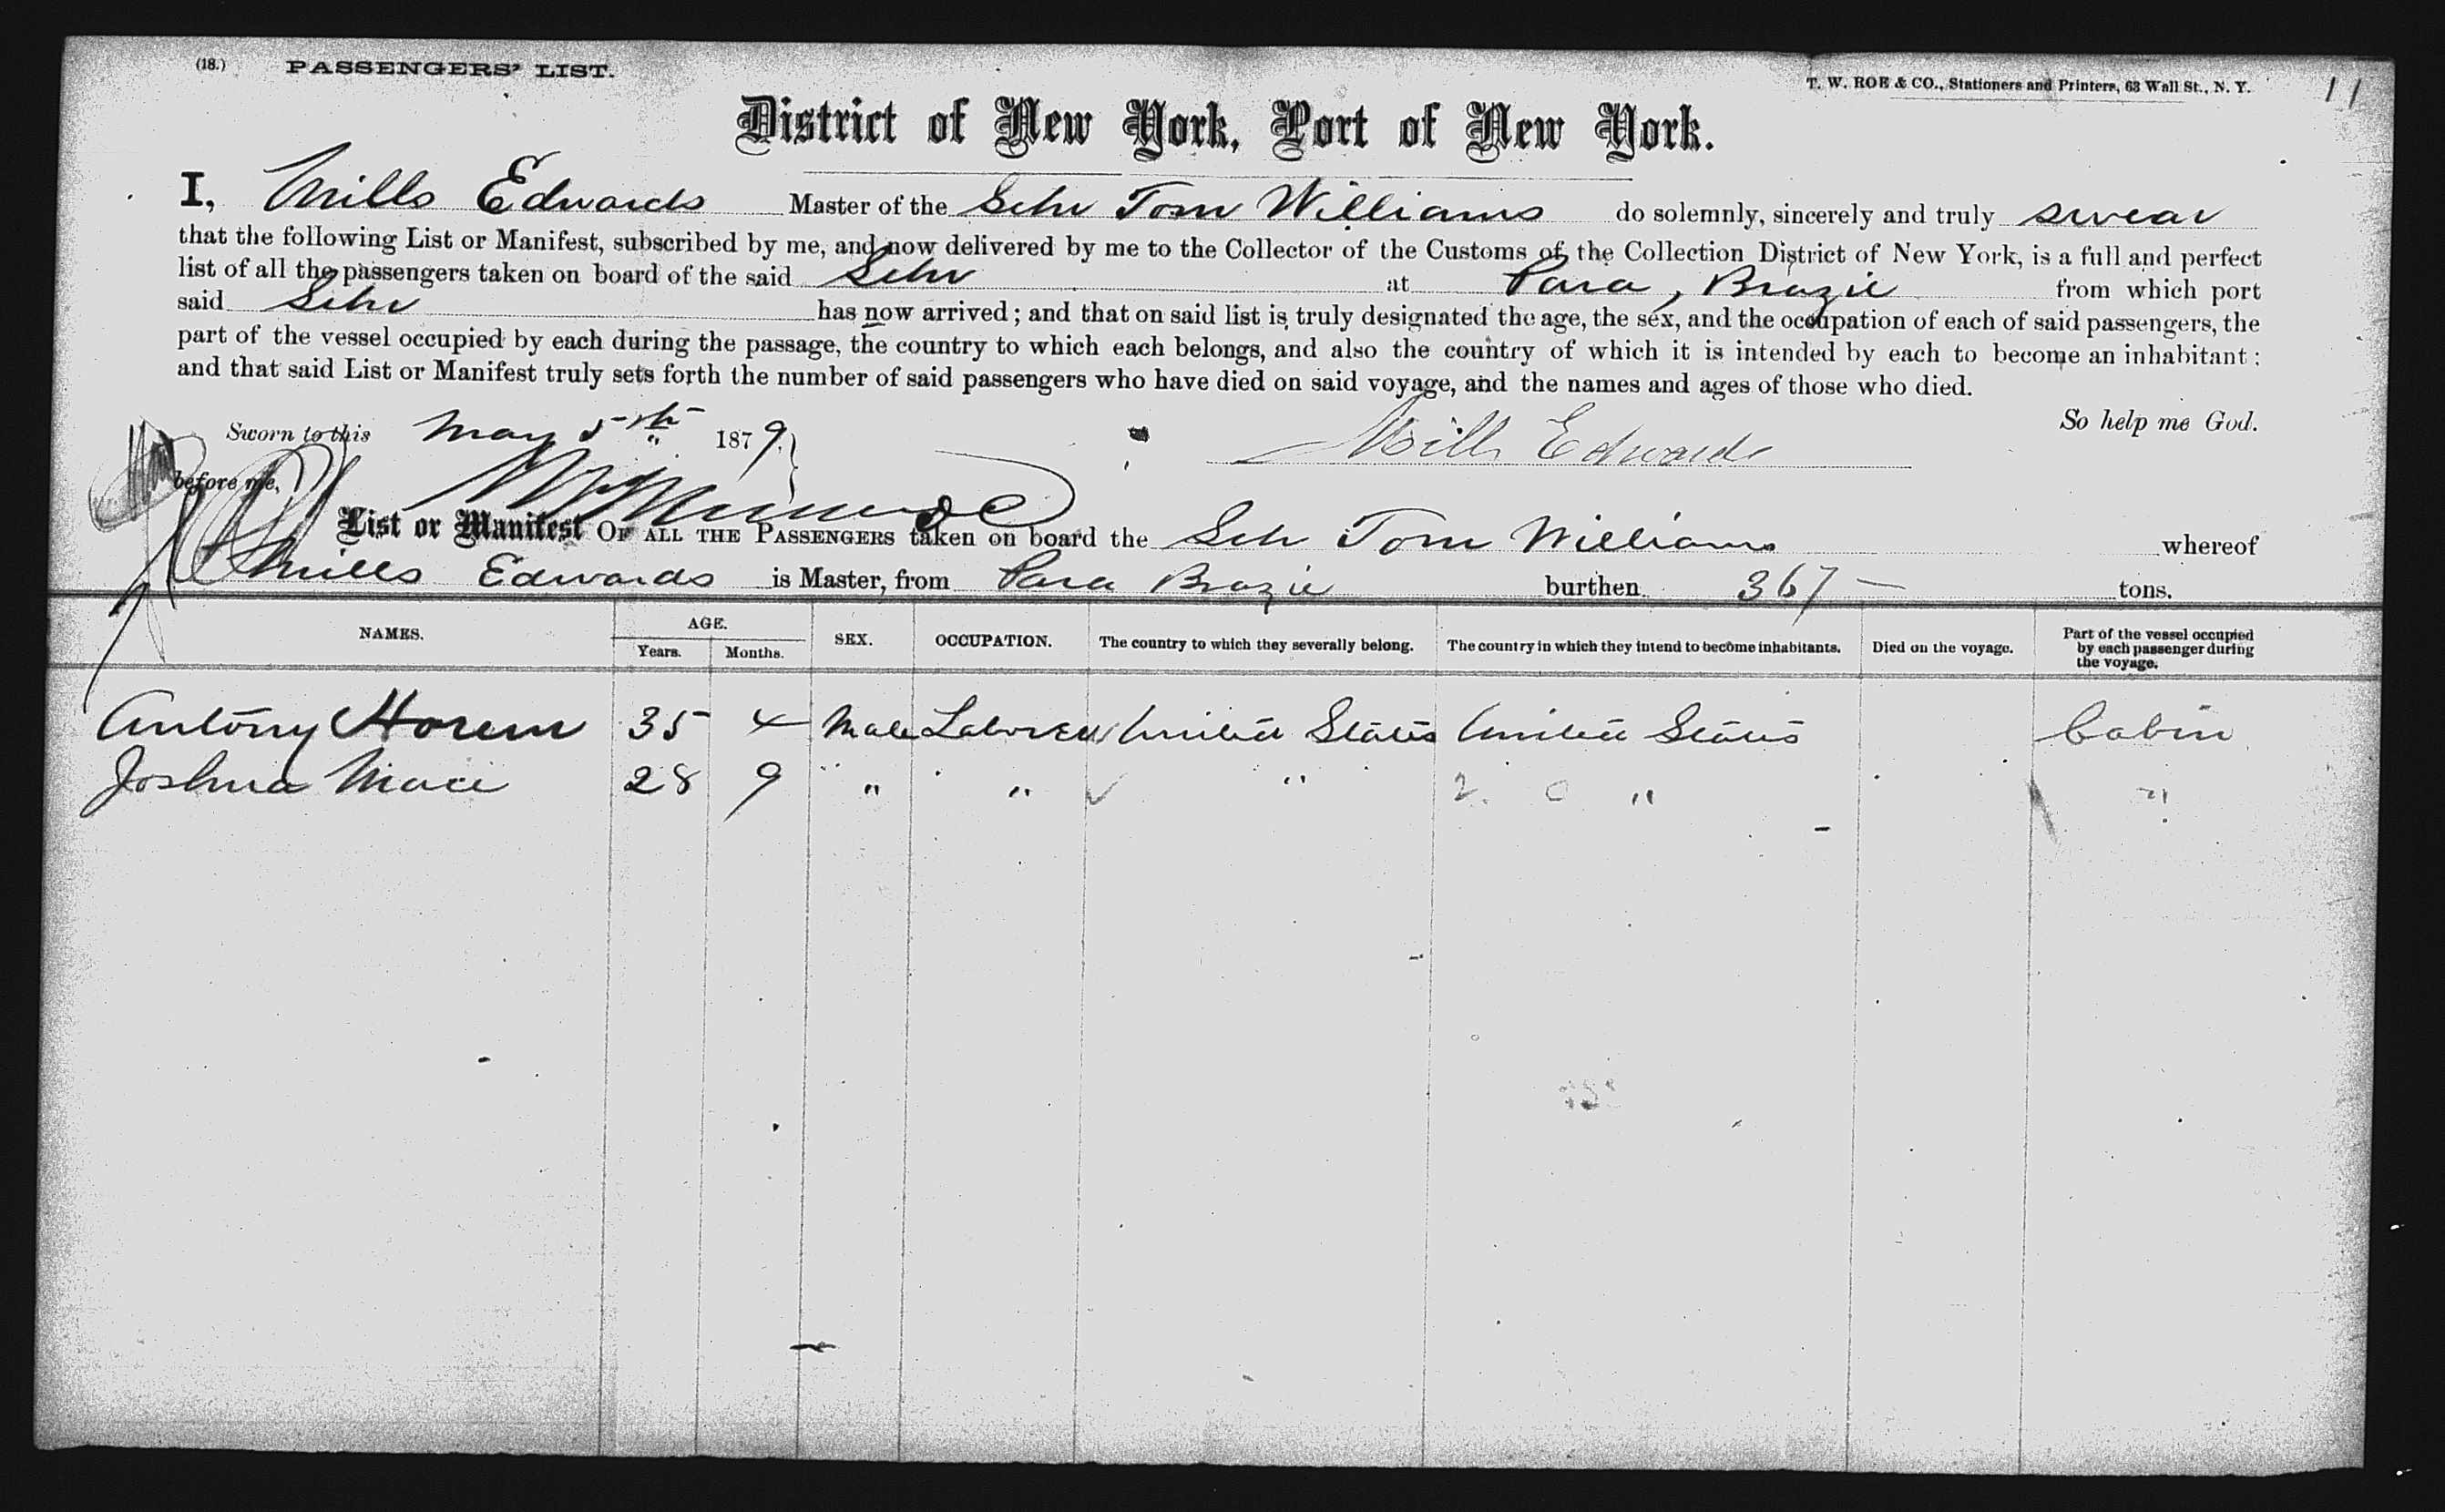 (18.) PASSENGERS' LIST.
T. W. ROE & CO., Stationers and Printers, 63 Wall St., N. Y.
11
District of New York, Port of New York.
I, Mills Edwards Master of the Schr Tom Williams do solemnly, sincerely and truly swear
that the following List or Manifest, subscribed by me, and now delivered by me to the Collector of the Customs of the Collection District of New York, is a full and perfect
list of all the passengers taken on board of the said Schr at Para, Brazil from which port
said Schr has now arrived; and that on said list is truly designated the age, the sex, and the occupation of each of said passengers, the
part of the vessel occupied by each during the passage, the country to which each belongs, and also the country of which it is intended by each to become an inhabitant:
and that said List or Manifest truly sets forth the number of said passengers who have died on said voyage, and the names and ages of those who died.
So help me God.
Sworn to this May 5th 1879.
Mills Edwards
before me,
List or Manifest OF ALL THE PASSENGERS taken on board the Sch Tom Williams whereof
Mills Edwards is Master, from Para Brazil burthen 367 — tons.
NAMES. AGE. Years. Months. SEX. OCCUPATION. The country to which they severally belong. The country in which they intend to become inhabitants. Died on the voyage. Part of the vessel occupied by each passenger during the voyage.
Antony 35 4 Male Laborer United States United States Cabin
Joshua 28 9 " " " " "